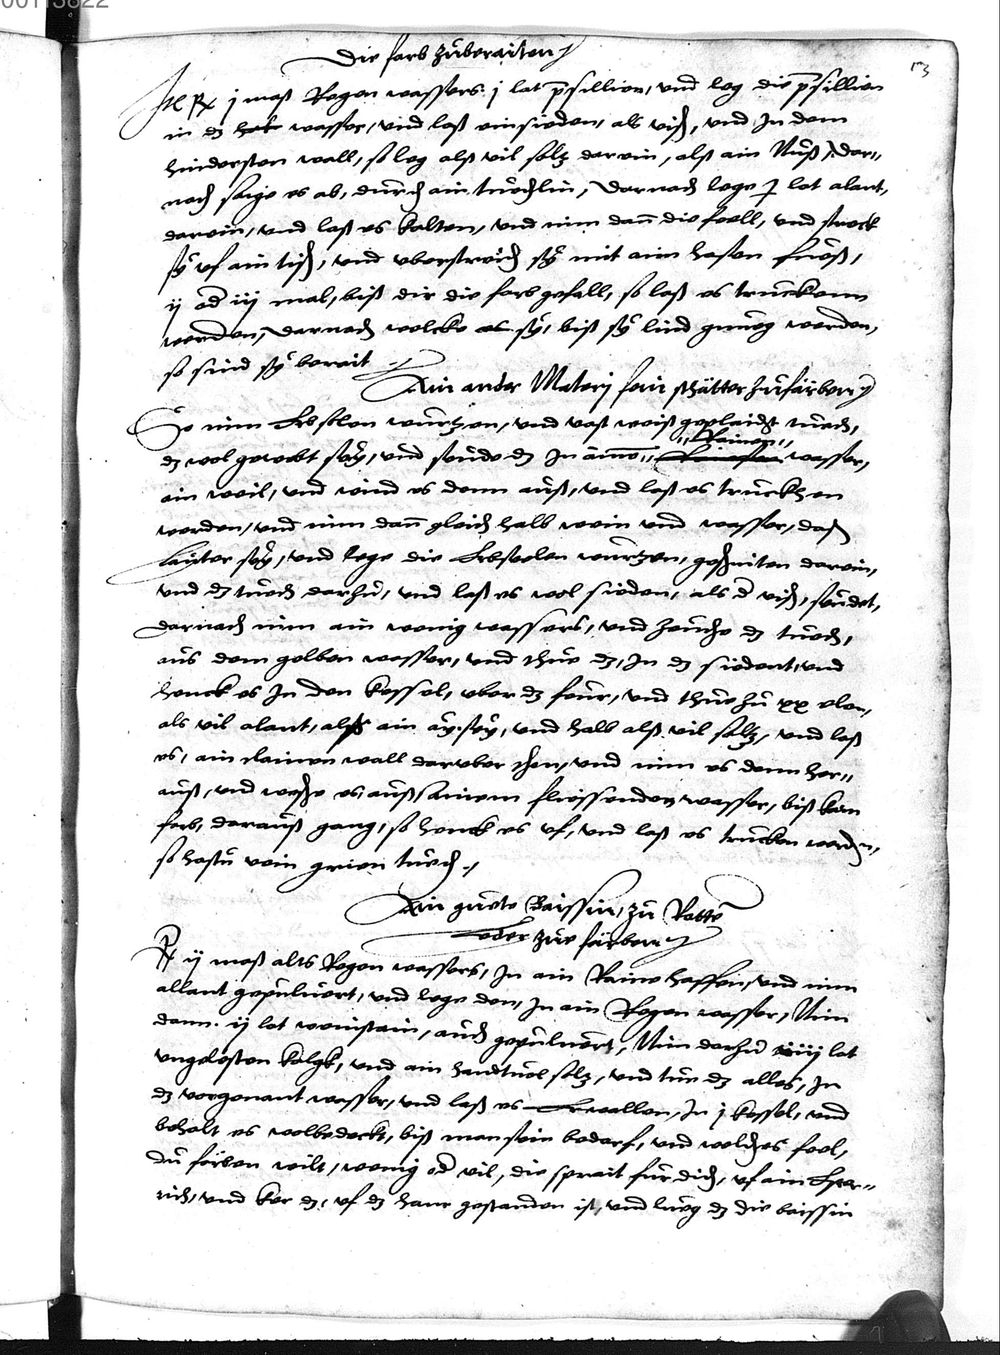 00113822
173
Die farb zůberaiten
Itl Rx j maß Regen wassers j lat presillien, vnd leg die presillien
in dz wasser, vnd laß einsieden, als visch, vnd In dem
hindersten wall, so leg alß vil saltz darein, alß ain Nuß, Dar„
nach seige es ab, durch ain tuechlin, Darnach lege j lot alant,
darein, vnd laß es kalten, vnd nim dañ die fell, vnd streck
sÿ vf ain tisch, vnd vberstreich sÿ mit aim hasen fueß,
ij od iij mal, biß dir die farb gefall, so laß es truckenn
werden, Darnach welcke sÿ, biß sÿ lind gnueg werden,
so sind sÿ bereit
Ain ander Materj fein schätter zůfärben
So nim Erbselen wurtzen, vnd vast weiß geplaicht tuech,
„Rainen„
dz wol gewebt seÿ, vnd seude dz In wasser,
ain weil, vnd wind es denn auß, vnd laß es truckhen
werden, vnd nim dañ gleich halb wein vnd wasser, daß
lauter seÿ, vnd lege die Erbselen wurtzen, geschniten darein,
vnd dz tuech darzů, vnd laß es wol sieden, als d visch, seudet,
Darnach nim ain wenig wassers, vnd zeuche dz tuech,
aus dem gelben wasser, vnd thue dz, In dz siedent, vnd
henck es In den kessel, vber dz feur, vnd thue zů xx elen,
als vil alant, alß ain aÿ seÿ, vnd halb alß vil saltz, vnd laß
es, ain clainen wall darvber thon, vnd nim es denn her„
auß, vnd wesche es auß ainem fliessenden wasser, biß kain
farb, darauß gang, so henck es vf, vnd laß es trucken werden,
so hastu ein grien tuech
Ain guete Baissin, zů Rotte
oder zue färben
Rx ij maß alts Regen wassers, In ain Raine haffen, vnd nim
allant gepuluert, vnd lege den, In ain Regen wasser, Nim
dann ij lot weinstain, auch gepuluert, Nim darzů iiij lot
vngelesten kalgk, vnd ain handtuol saltz, vnd tue dz alles, In
dz vorgenant wasser, vnd laß es Erwallen, In j kessel, vnd
behalt es wolbedeckt, biß man sein bedarf, vnd welches feel,
du ferben wilt, wenig od vil, die sprait fur dich, vf ain
vnd ker dz, vf dz haar gestanden ist, vnd lueg dz die baissin